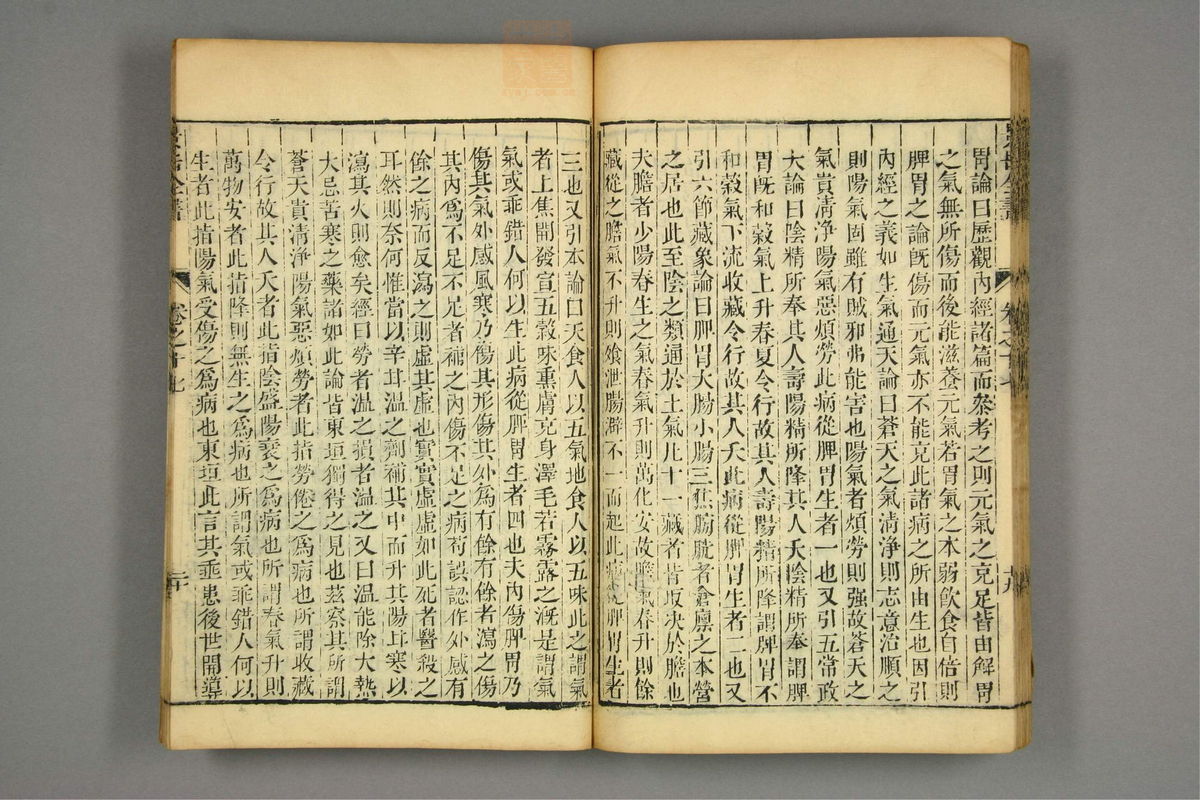 胃論曰歷觀內經諸篇而參考之則元氣之充足皆由脾胃
之氣無所傷而後能滋養元氣若胃氣之本弱飲食自倍則
脾胃之論既傷而元氣亦不能克此諸病之所由生也因引
內經之義如生氣通天論曰蒼天之氣清淨則志意治順之
則陽氣固雖有賊邪弗能害也陽氣者煩勞則強故蒼天之
氣貴清淨陽氣惡煩勞此病從脾胃生者一也又引五常政
大論曰陰精所奉其人壽陽精所降其人夭陰精所奉謂脾
胃既和穀氣上升春夏令行故其人壽陽精所降謂脾胃不
和穀氣下流收藏令行故其人夭此病從脾胃生者二也又
引六節藏象論曰脾胃大腸小腸三焦膀胱者倉廩之本營
之居也此至陰之類通於土氣凡十一藏者皆取決於膽也
夫膽者少陽春生之氣春氣升則萬化安故膽氣春升則餘
藏從之膽氣不升則飧泄腸澼不一而起此病從脾胃生者
三也又引本論曰天食人以五氣地食人以五味此之謂氣
者上焦開發宣五穀味熏膚充身澤毛若霧露之溉是謂氣
氣或乖錯人何以生此病從脾胃生者四也夫內傷脾胃乃
傷其氣外感風寒乃傷其形傷其外為有餘有餘者瀉之傷
其內為不足不足者補之內傷不足之病苟誤認作外感有
餘之病而反瀉之則虛其虛也實實虛虛如此死者醫殺之
耳然則奈何惟當以辛甘溫之劑補其中而升其陽甘寒以
瀉其火則愈矣經曰勞者溫之損者溫之又曰溫能除大熱
大忌苦寒之藥諸如此論皆東垣獨得之見也茲察其所謂
蒼天貴清淨陽氣惡煩勞者此指勞倦之為病也所謂收藏
令行故其人夭者此指陰盛陽衰之為病也所謂春氣升則
萬物安者此指降則無生之為病也所謂氣或乖錯人何以
生者此指陽氣受傷之為病也東垣此言其垂患後世開導
卷之十七
十九
卷之十七
二十